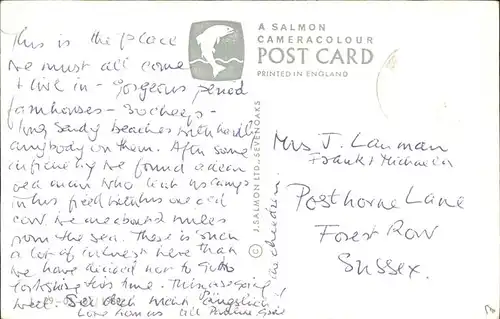 This is the place
we must all come
+ live in - gorgeous period
farmhouses - so cheap -
long sandy beaches with hardly
anybody on them. After some
infirmity we found a dear
old man who let us camp
in his field with his one old
cow. We are about 2 miles
from the sea. There is such
a lot of interest here than
we have decided not to go to
Yorkshire this time. Things going
well.
Love from us all Pauline
A SALMON
CAMERACOLOUR
POST CARD
PRINTED IN ENGLAND
© J. SALMON LTD., SEVENOAKS
Mrs J. Lanman
Frank + Michaela
Posthorne Lane
Forest Row
Sussex.